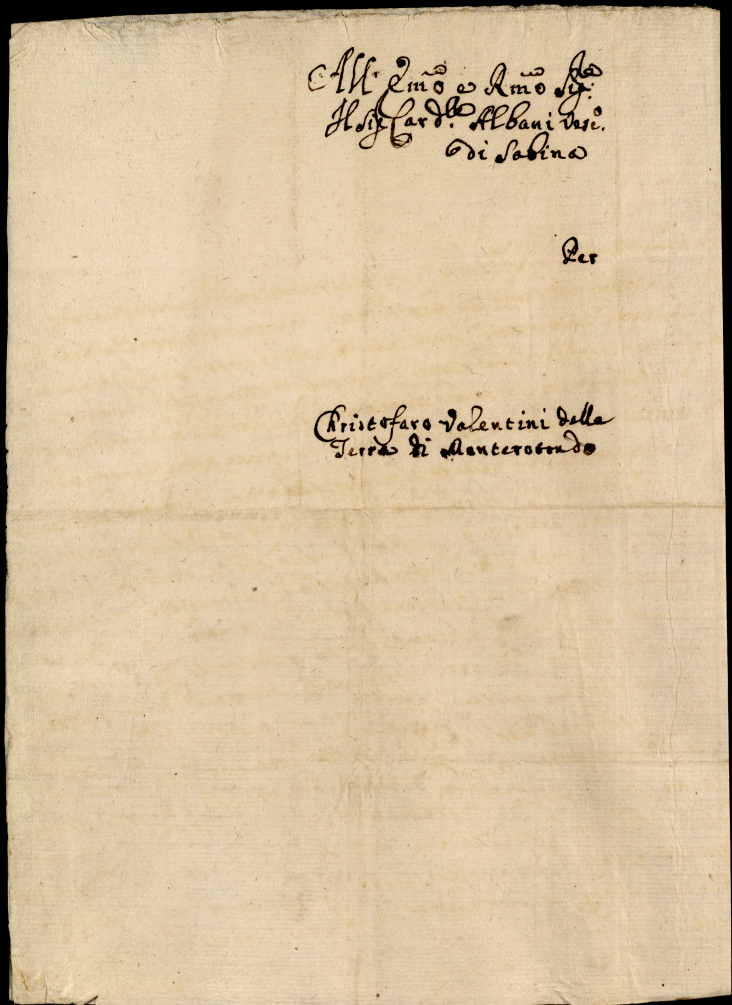 All' Emõ e Rmõ Sigr̃e
Il Sig Card.le Albani Vesc.o
di Sabina
Per
Christofaro Valentini della
Terra di Monterotondo